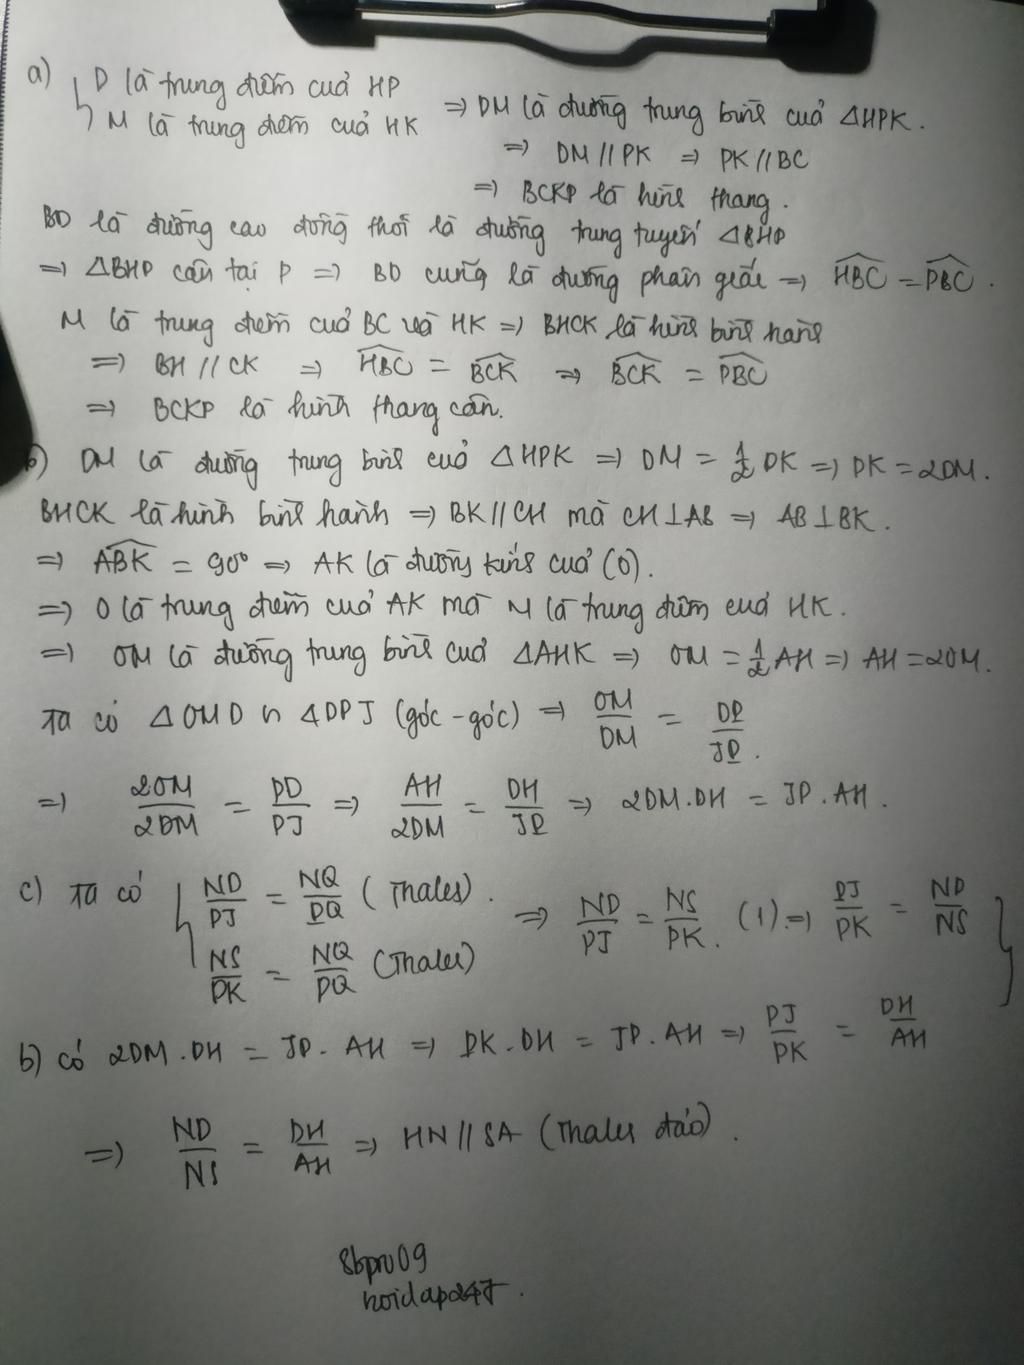 a) { D là trung điểm của HP
M là trung điểm của HK ⇒ DM là đường trung bình của △HPK.
⇒ DM // PK ⇒ PK // BC
⇒ BCKP là hình thang.
BD là đường cao đồng thời là đường trung tuyến △BHP
⇒ △BHP cân tại P ⇒ BD cũng là đường phân giác ⇒ \widehat{HBC} = \widehat{PBC}.
M là trung điểm của BC và HK ⇒ BHCK là hình bình hành
⇒ BH // CK ⇒ \widehat{HBC} = \widehat{BCK} ⇒ \widehat{BCK} = \widehat{PBC}
⇒ BCKP là hình thang cân.
b) DM là đường trung bình của △HPK ⇒ DM = 1/2 DK ⇒ DK = 2DM.
BHCK là hình bình hành ⇒ BK // CH mà CH ⊥ AB ⇒ AB ⊥ BK.
⇒ \widehat{ABK} = 90° ⇒ AK là đường kính của (O).
⇒ O là trung điểm của AK mà M là trung điểm của HK.
⇒ OM là đường trung bình của △AHK ⇒ OM = 1/2 AH ⇒ AH = 2OM.
Ta có △OMD ∽ △DPJ (góc - góc) ⇒ OM/DM = DP/JP.
⇒ 2OM/2DM = PD/PJ ⇒ AH/2DM = DH/JP ⇒ 2DM.DH = JP.AH.
c) Ta có { ND/PJ = NQ/PQ (Thales).
NS/PK = NQ/PQ (Thales) ⇒ ND/PJ = NS/PK. (1). ⇒ PJ/PK = ND/NS }
b) có 2DM.DH = JP.AH ⇒ PK.DH = JP.AH ⇒ PJ/PK = DH/AH
⇒ ND/NS = DH/AH ⇒ HN // SA (Thales đảo).
8bpro09
hoidap247.